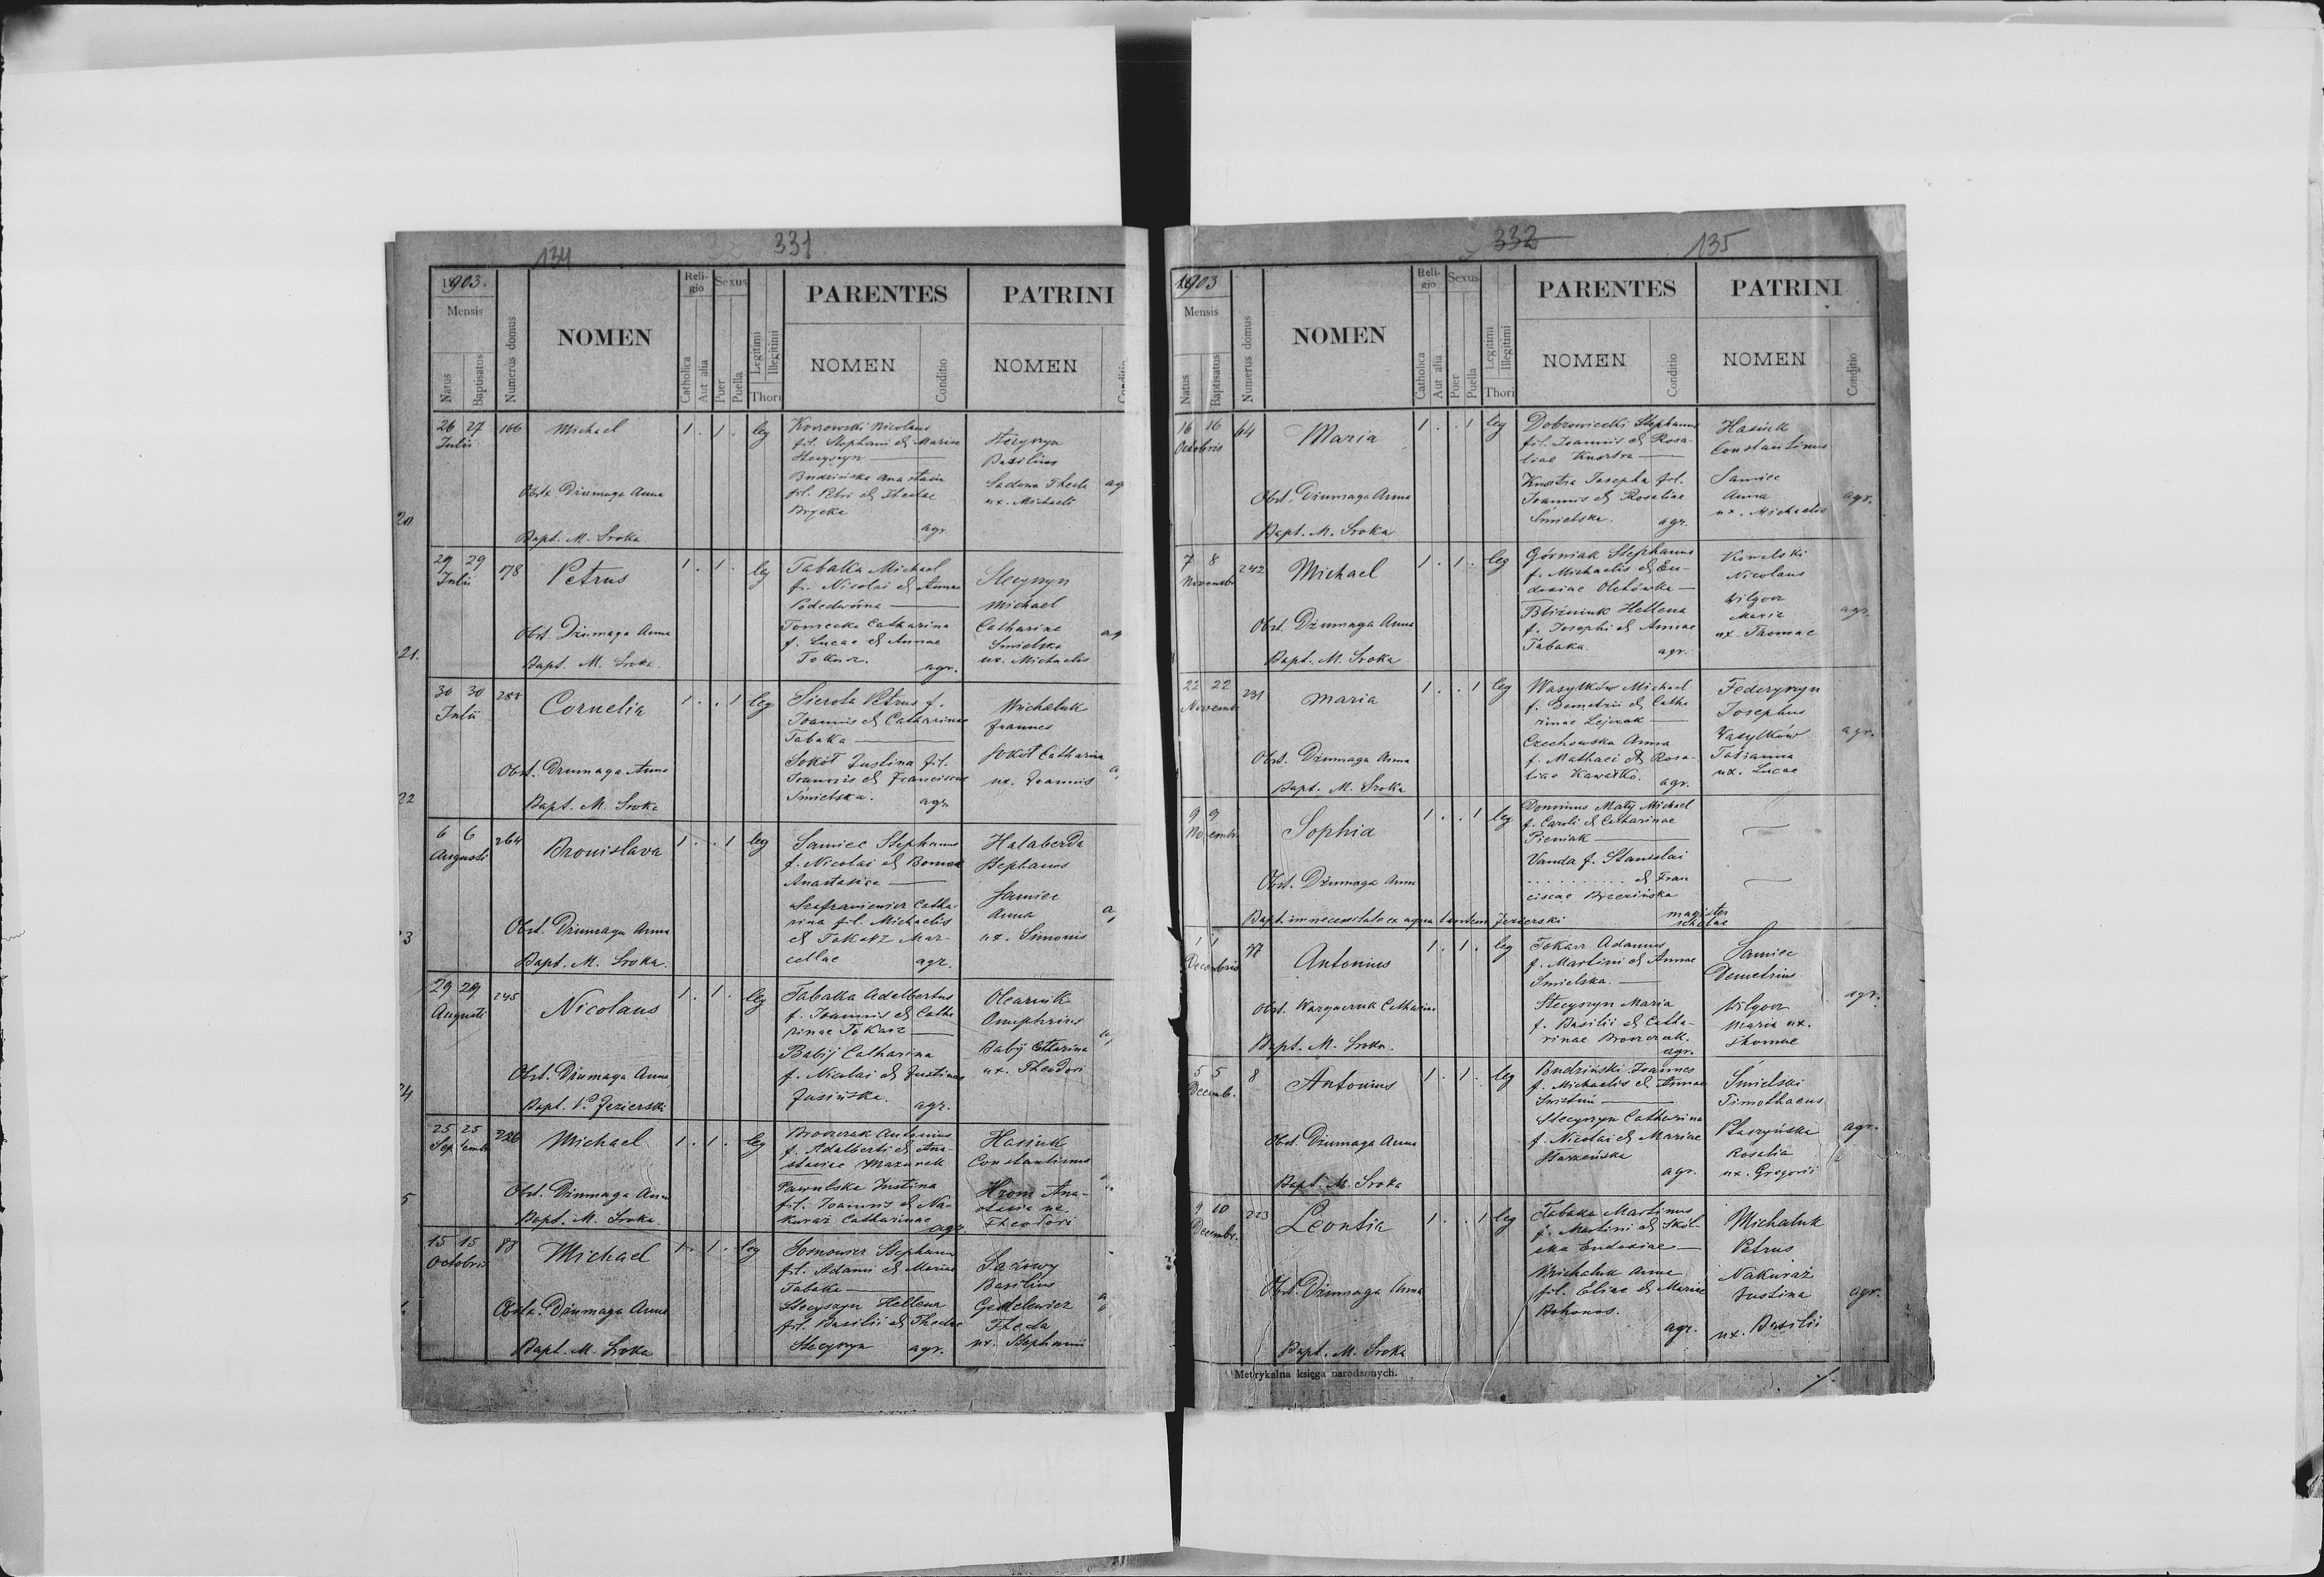 134
331
1903.
Mensis
Natus
Baptisatus
Numerus domus
NOMEN
Reli-
gio
Catholica
Aut alia
Sexus
Puer
Puella
Legitimi
Illegitimi
Thori
PARENTES
NOMEN
Conditio
PATRINI
NOMEN
26 27
Julii
166
Michael
1 . 1 . leg
fil. Stephani & Mariae
Stecyszyn
Budzińska Anastasia
fil. Petri & Theclae
agr.
Stecyszyn
Basilius
Sadowa Thecla
ux. Michaeli
Obst. Dziumaga Anna
Bapt. M. Sroka
20
29 29
Julii
178
Petrus
1 . 1 . leg
Tabaka Michael
f. Nicolai & Annae
Tomecka Catharina
f. Lucae & Annae
Tokarz.
agr.
Stecyszyn
Michael
Catharina
Śmielska
ux. Michaelis
ag
Obst. Dziumaga Anna
Bapt. M. Sroka.
21.
30 30
Julii
Cornelia
1 . . 1 leg
Sierota Petrus f.
Joannis & Catharinae
Tabaka
Sokół Justina fil.
Joannis & Franciscae
Śmielska.
agr.
Michaluk
Joannes
Sokół Catharina
ux. Joannis
Obst. Dziumaga Anna
Bapt. M. Sroka
22
6 6
Augusti
264
Bronislava
1 . . 1 leg
Samiec Stephanus
f. Nicolai & Bomek
Anastasiae
Szafraniewicz Catha-
rina fil. Michaelis
& Tokarz Mar-
cellae
agr.
Hałaberda
Stephanus
Samiec
Anna
ux. Simonis
Obst. Dziumaga Anna
Bapt. M. Sroka.
3
29 29
Augusti
245
Nicolaus
1 . 1 . leg
Tabaka Adalbertus
f. Joannis & Catha
rinae Tokarz
Babij Catharina
f. Nicolai & Justinae
Jasińska.
agr.
Olearnik
Onuphrius
Babij Catharina
ux. Theodori
Obst. Dziumaga Anna
Bapt. V. Jezierski
4
25 25
Septembr
226
Michael
1 . 1 . leg
Brovczak Antonius
f. Adalberti & Ana-
stasiae Mazurek
Pawulska Justina
fil. Joannis & Na-
kuraż Catharinae
agr.
Hasiuk
Constantinus
Hrom Ana-
stasia ux
Theodori
Obst. Dziumaga Anna
Bapt. M. Sroka
5
15 15
Octobris
88
Michael
1 . 1 . leg
Sosnowicz Stephanus
fil. Adami & Mariae
Tabaka
Stecyszyn Hellena
fil. Basilii & Theclae
Stecyszyn
agr.
Basilius
Thecla
ux. Stephani
Obst. Dziumaga Anna
Bapt. M. Sroka
332
135
1903
Mensis
Natus
Baptisatus
Numerus domus
NOMEN
Reli-
gio
Catholica
Aut alia
Sexus
Puer
Puella
Legitimi
Illegitimi
Thori
PARENTES
NOMEN
Conditio
PATRINI
NOMEN
Conditio
16 16
Octobris
64
Maria
1 . . 1 leg
Dobrowiecki Stephanus
fil. Joannis & Rosa-
liae Knostra
Knostra Josepha fil.
Joannis & Rosaliae
Śmielska.
agr.
Hasiuk
Constantinus
Samiec
Anna
ux. Michaelis
agr.
Obst. Dziumaga Anna
Bapt. M. Sroka
7 8
Novembr
242
Michael
1 . 1 . leg
Górniak Stephanus
f. Michaelis & Eu-
doxiae Olchówka
Bliźniuk Hellena
f. Josephi & Annae
Tabaka.
agr.
Kowelski
Nicolaus
Wilgocz
Maria
ux. Thomae
agr.
Obst. Dziumaga Anna
Bapt. M. Sroka
22 22
Novemb.
231
Maria
1 . . 1 leg
Wasylków Michael
f. Demetrii & Catha
rinae Lejczak
Czechowska Anna
f. Mathaei & Rosa-
liae Kawałko.
agr.
Federyszyn
Josephus
Wasylków
Tatianna
ux. Lucae
agr.
Obst. Dziumaga Anna
Bapt. M. Sroka
9 9
Novembr.
Sophia
1 . . 1 leg
Dominus Mały Michael
f. Caroli & Catharinae
Pieniak
Vanda f. Stanislai
. . . . . . . . . . & Fran
ciscae Brzezińska
magister
scholae
Obst. Dziumaga Anna
Bapt. in necessitate ex aqua tantum Jezierski
1 1
Decembris
77
Antonius
1 . 1 . leg
Tokarz Adamus
f. Martini & Annae
Śmielska.
Stecyszyn Maria
f. Basilii & Catha-
rinae Brovczak.
agr.
Samiec
Demetrius
Wilgocz
Maria ux.
Thomae
agr.
Obst. Catharina
Bapt. M. Sroka.
5 5
Decemb.
8
Antonius
1 . 1 . leg
Budziński Joannes
f. Michaelis & Annae
Stecyszyn Catharina
f. Nicolai & Mariae
Starzeńska
agr.
Śmielski
Timothaeus
Ptaszyńska
Rosalia
ux. Gregorii
agr.
Obst. Dziumaga Anna
Bapt. M. Sroka
9 10
Decembr.
223
Leontia
1 . . 1 leg
Tabaka Martinus
f. Martini & Skól-
ska Eudoxiae
Michaluk Anna
fil. Eliae & Mariae
Bohonos.
agr.
Michaluk
Petrus
Nakuraż
Justina
ux. Basilii
agr.
Obst. Dziumaga Anna
Bapt. M. Sroka
Metrykalna księga narodzonych.